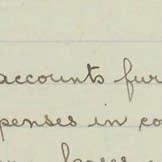 accounts fur
penses in co